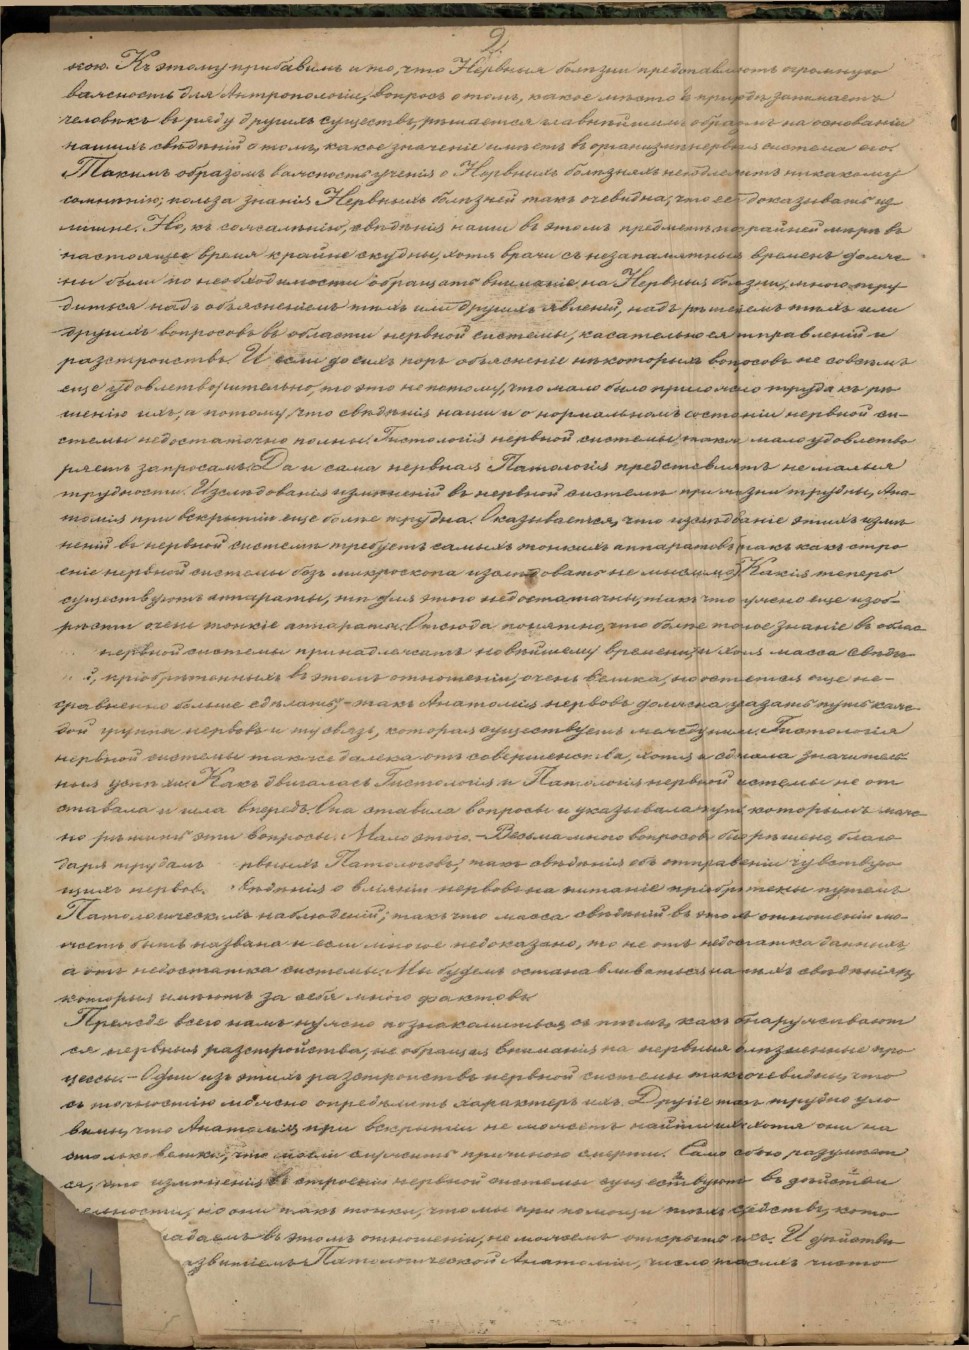 2.
ною. Къ этому прибавимъ и то, что Нервныя болѣзни представляютъ огромную
важность для Антропологіи, вопросъ о томъ, какое мѣсто въ природѣ занимаетъ
человѣкъ въ ряду другихъ существъ, рѣшается главнѣйшимъ образомъ на основаніи
нашихъ свѣдѣній о томъ, какое значеніе имѣетъ въ организмѣ нервная система его.
Такимъ образомъ важность ученія о Нервныхъ болѣзняхъ не подлежитъ никакому
сомнѣнію; польза знанія Нервныхъ болѣзней такъ очевидна, что ее доказывать из
лишне. Но, къ сожалѣнію, свѣдѣнія наши въ этомъ предметѣ по крайней мѣрѣ въ
настоящее время крайне скудны, хотя врачи съ незапамятныхъ временъ долж
ны были по необходимости обращать вниманіе на Нервныя болѣзни, много тру
диться надъ объясненіемъ тѣхъ или другихъ явленій, надъ рѣшеніемъ тѣхъ или
другихъ вопросовъ въ области нервной системы, касательно ея отправленій и
разстройствъ. И если до сихъ поръ объясненіе нѣкоторыхъ вопросовъ не совсѣмъ
еще удовлетворительно, то это не потому, что мало было приложено труда къ рѣ
шенію ихъ, а потому, что свѣдѣнія наши и о нормальномъ состояніи нервной си-
стемы недостаточно полны. Гистологія нервной системы пока мало удовлетво
ряетъ запросамъ. Да и сама нервная Патологія представляетъ не малыя
трудности. Изслѣдованія измѣненій въ нервной системѣ при жизни трудны, Ана-
томія при вскрытіи еще болѣе трудна. Оказывается, что изслѣдованіе этихъ измѣ
неній въ нервной системѣ требуетъ самыхъ тонкихъ аппаратовъ (такъ какъ стро
еніе нервной системы безъ микроскопа изслѣдовать не мыслимо). Какія теперь
существуютъ аппараты, тѣ для этого недостаточны, такъ что нужно еще изоб-
рѣсти очень тонкіе аппараты. Отсюда понятно, что болѣе точное знаніе въ облас
нервной системы принадлежитъ новѣйшему времени, и хотя масса свѣдѣ
й, пріобрѣтенныхъ въ этомъ отношеніи, очень велика, но остается еще не-
сравненно больше сдѣлать, – такъ Анатомія нервовъ должна указать путь каж-
дой группы нервовъ и ту связь, которая существуетъ между ними. Гистологія
нервной системы также далека отъ совершенства, хотя и сдѣлала значитель
ные успѣхи. Какъ двигалась Гистологія и Патологія нервной системы не от
ставала и шла впередъ. Она ставила вопросы и указывала пути, которымъ мож-
но рѣшить эти вопросы. Мало этого. – Весьма много вопросовъ бы рѣшено, благо
даря трудамъ рвныхъ Патологовъ; такъ свѣдѣнія объ отправленіи чувствую
щихъ нервовъ. вѣдѣнія о вліяніи нервовъ на питаніе пріобрѣтены путемъ
Патологическихъ наблюденій; такъ что масса свѣдѣній въ этомъ отношеніи мо-
жетъ быть названа и если многое недоказано, то не отъ недостатка данныхъ,
а отъ недостатка системы. Мы будемъ останавливаться на тѣхъ свѣдѣніяхъ,
которыя имѣютъ за себя много фактовъ.
Прежде всего намъ нужно познакомиться съ тѣмъ, какъ обнаруживают
ся нервныя разстройства, не обращая вниманія на нервныя болѣзненные про
цессы. – Одни изъ этихъ разстройствъ нервной системы такъ очевидны, что
съ точностію можно опредѣлить характеръ ихъ. Другіе такъ трудно уло
вимы, что Анатомія при вскрытіи не можетъ найти ихъ хотя они на
столько велики, что могли служить причиною смерти. Само собою разумѣет
ся, что измѣненія въ строеніи нервной системы существуютъ въ дѣйстви
тельности, но они такъ тонки, что мы при помощи тѣхъ средствъ, кото
ладаемъ въ этомъ отношеніи, не можемъ открыть ихъ. И дѣйстви
азвитіемъ Патологической Анатоміи, число такихъ чисто